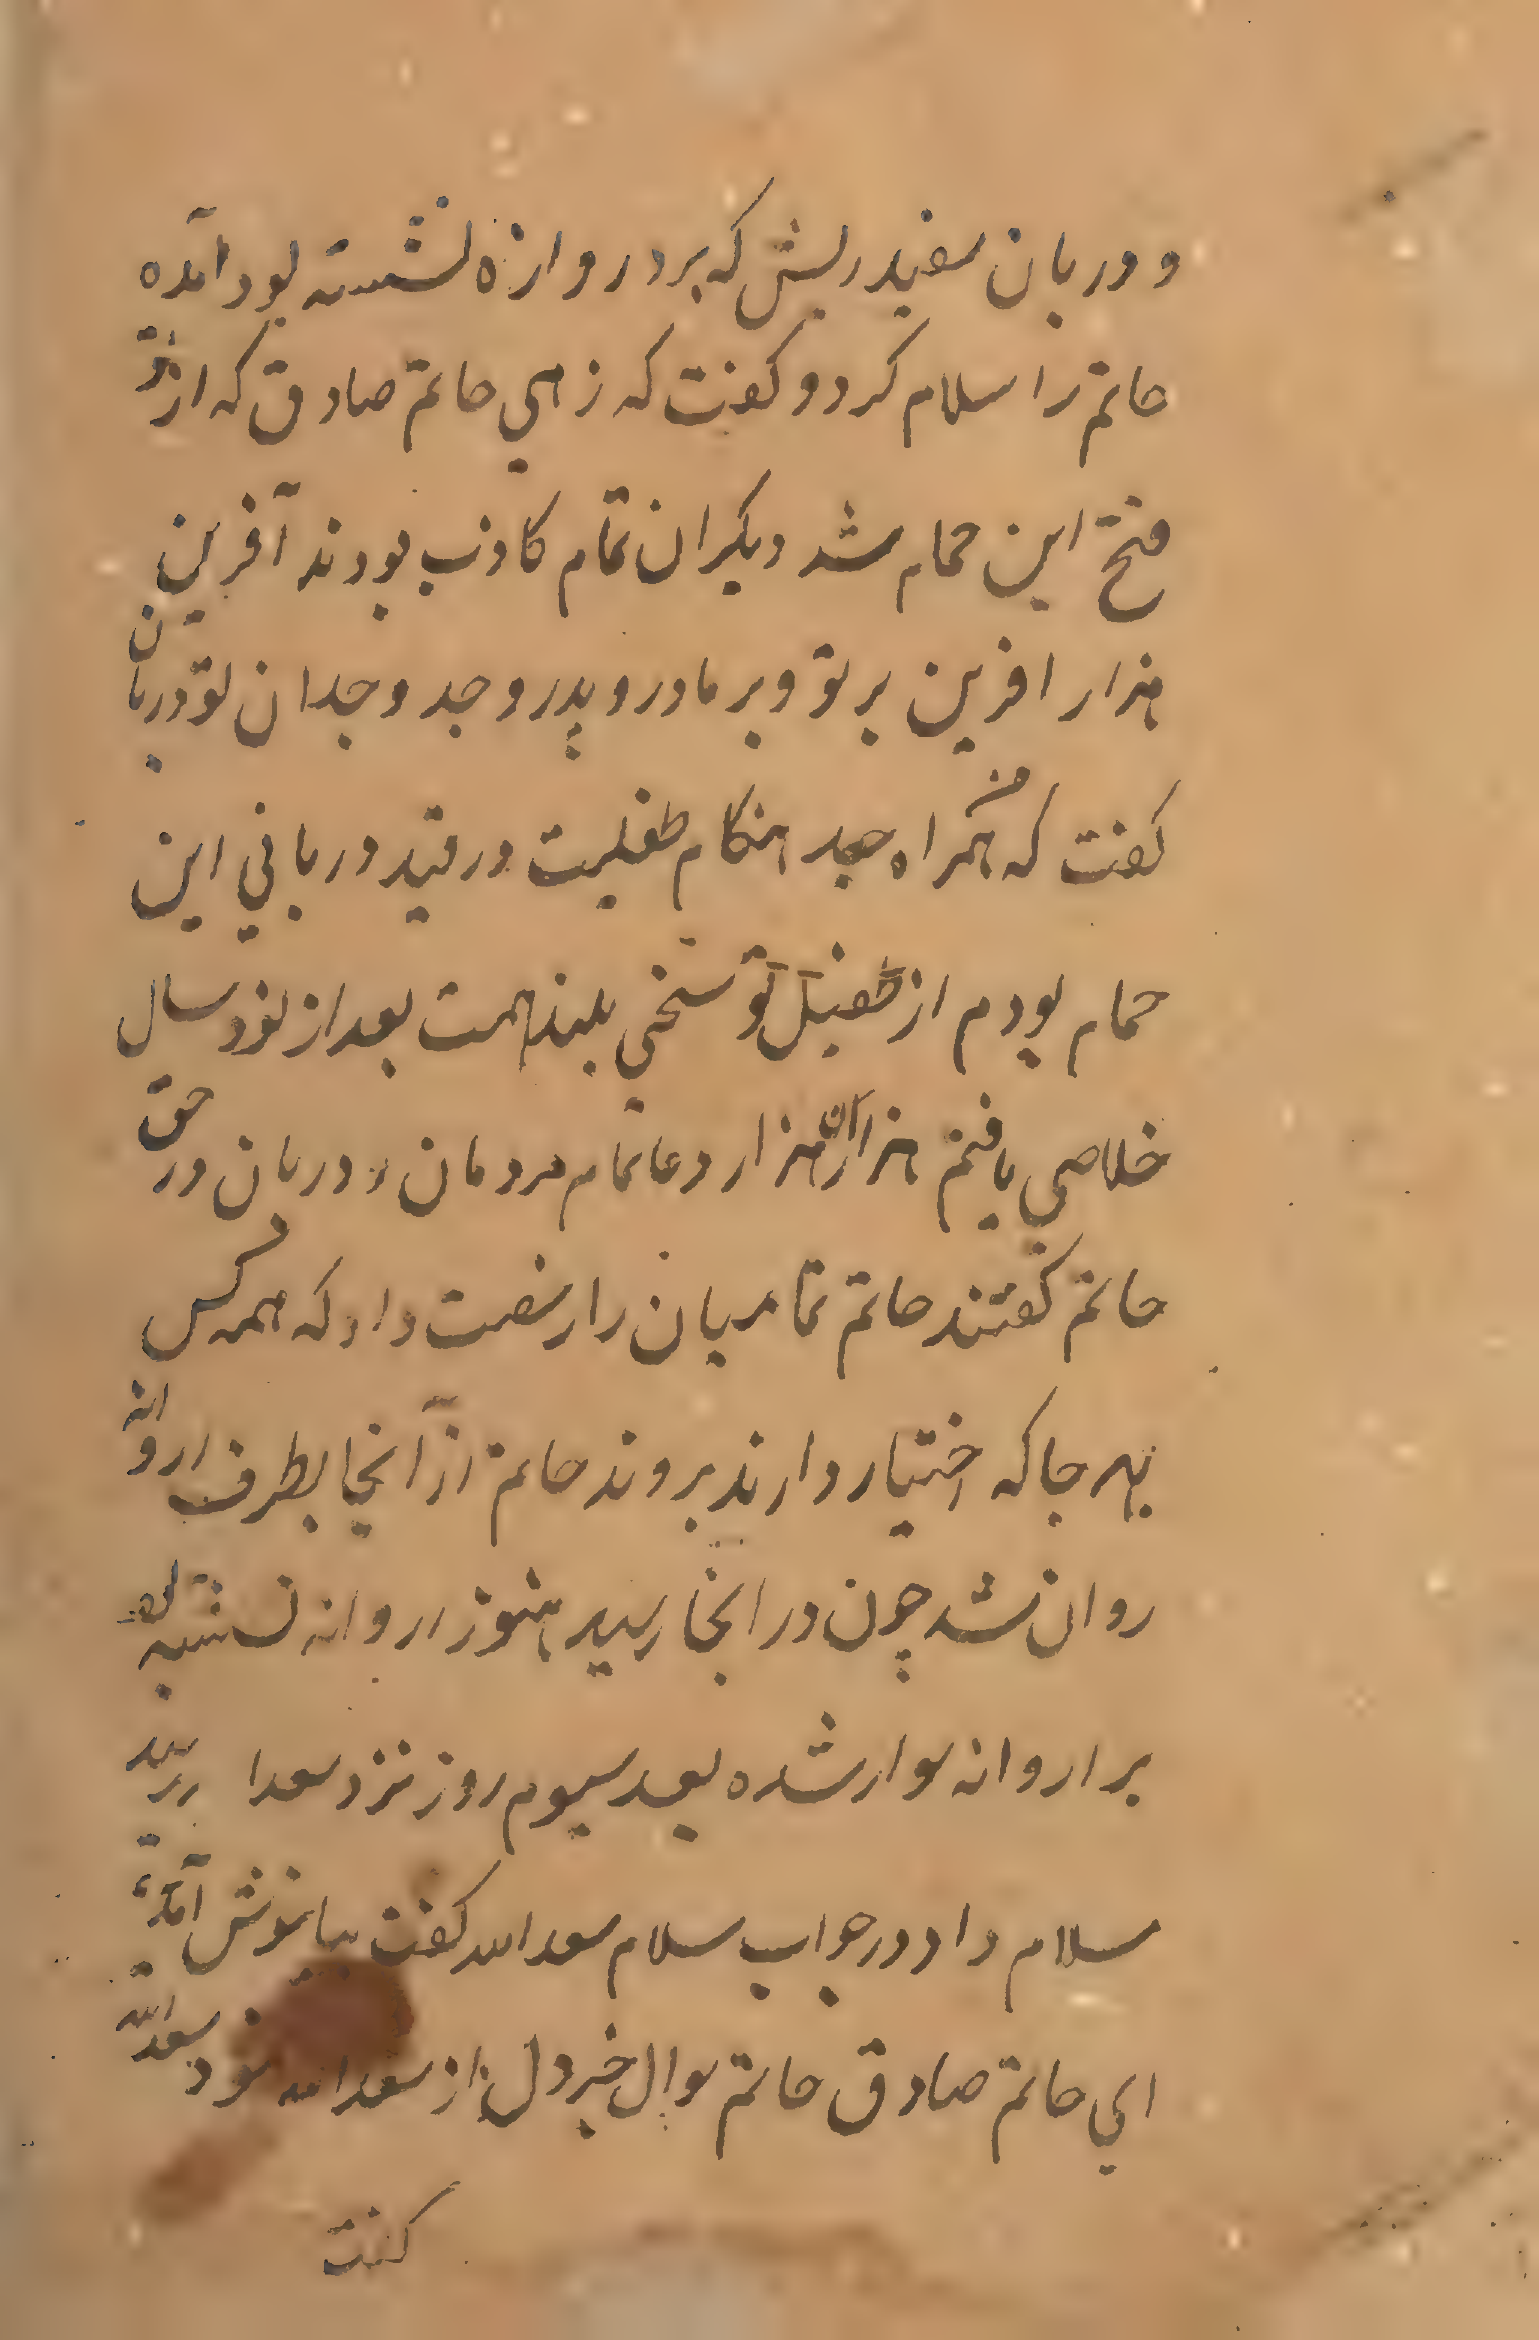 و دربان سفید ریش که بر دروازه نشسته بود آمده
حاتم را سلام کرد و کفت که زهی حاتم صادق که از تو
فتح این حمام شد دیکران تمام کاذب بودند آفرین
هزار افرین بر تو و بر مادر و پدر و جد و جدان تو دربان
کفت که من همراه جد هنکام طفلیت در قید دربانی این
حمام بودم از طفیل تو سخی بلند همت بعد از نود سال
خلاصی یافتم هزاران هزار دعا تمام مردمان و دربان در حق
حاتم کفتند حاتم تمامیان را رخصت داد که همه کس
بهر جا که اختیار دارند بروند حاتم از آنجا بطرف اروانه
روان شد چون در انجا رسید هنوز اروانه نشسته بود
بر اروانه سوار شده بعد سیوم روز نزد سعدا رسید
سلام داد در جواب سلام سعد الله کفت بیا خوش آمدی
ای حاتم صادق حاتم سوال خبر دل از سعد الله نمود سعد الله
کفت